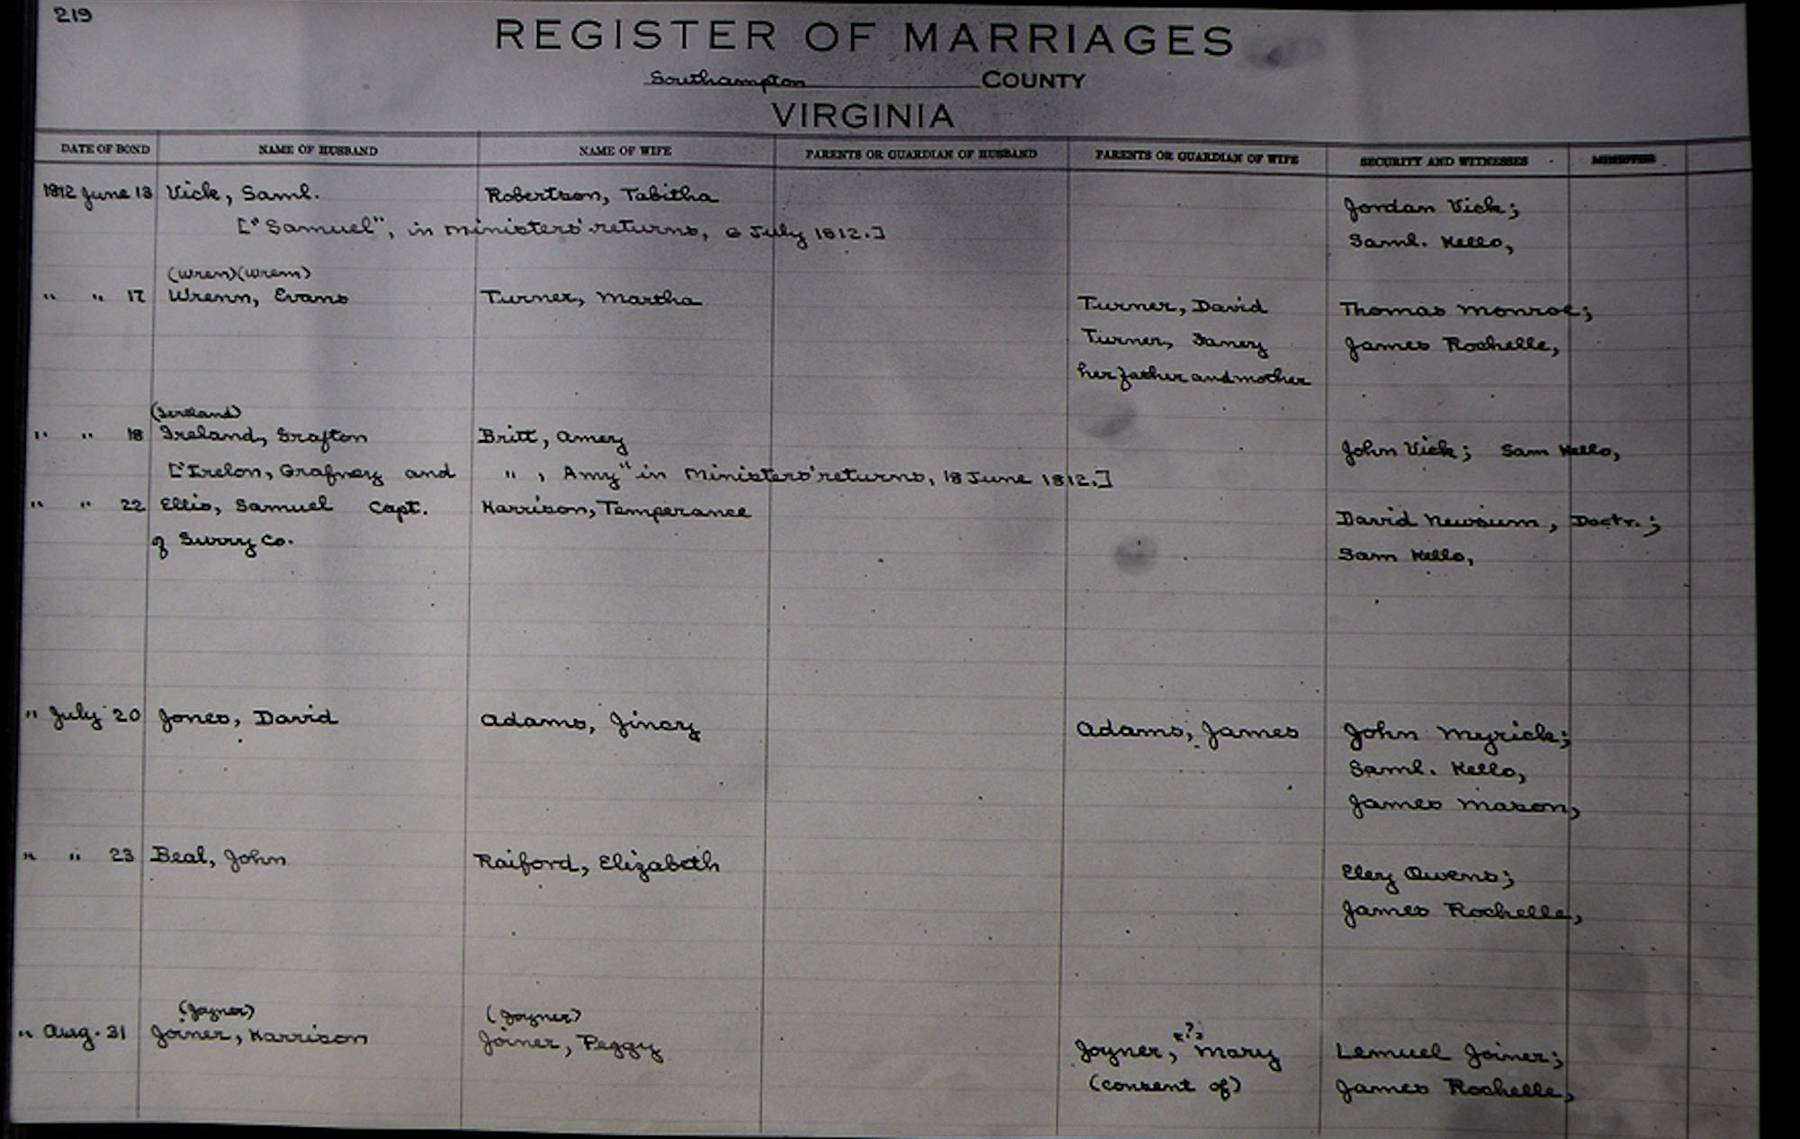 219
REGISTER OF MARRIAGES
Southampton COUNTY
VIRGINIA
DATE OF BOND NAME OF HUSBAND NAME OF WIFE PARENTS OR GUARDIAN OF HUSBAND PARENTS OR GUARDIAN OF WIFE SECURITY AND WITNESSES MINISTER
1812 June 13 Vick, Saml. Robertson, Tabitha Jordan Vick;
["Samuel", in ministers' returns, 6 July 1812.] Saml. Kello,
(Wren) (Wrem)
" " 17 Wrenn, Evans Turner, Martha Turner, David Thomas Monroe;
Turner, Fanny James Rochelle,
her father and mother
(Ireland)
" " 18 Ireland, Grafton Britt, Amey John Vick; Sam Kello,
["Irelon, Grafney and " , Amy" in Ministers' returns, 18 June 1812.]
" " 22 Ellis, Samuel Capt. Harrison, Temperance David Newsum, Doctr.;
of Surry Co. Sam Kello,
" July 20 Jones, David Adams, Jincy Adams, James John Myrick;
Saml. Kello,
James Mason,
" " 23 Beal, John Raiford, Elizabeth Eley Owens;
James Rochelle,
(Joyner) (Joyner)
" Aug. 31 Joiner, Harrison Joiner, Peggy Joyner, "?" Mary Lemuel Joiner;
(consent of) James Rochelle,